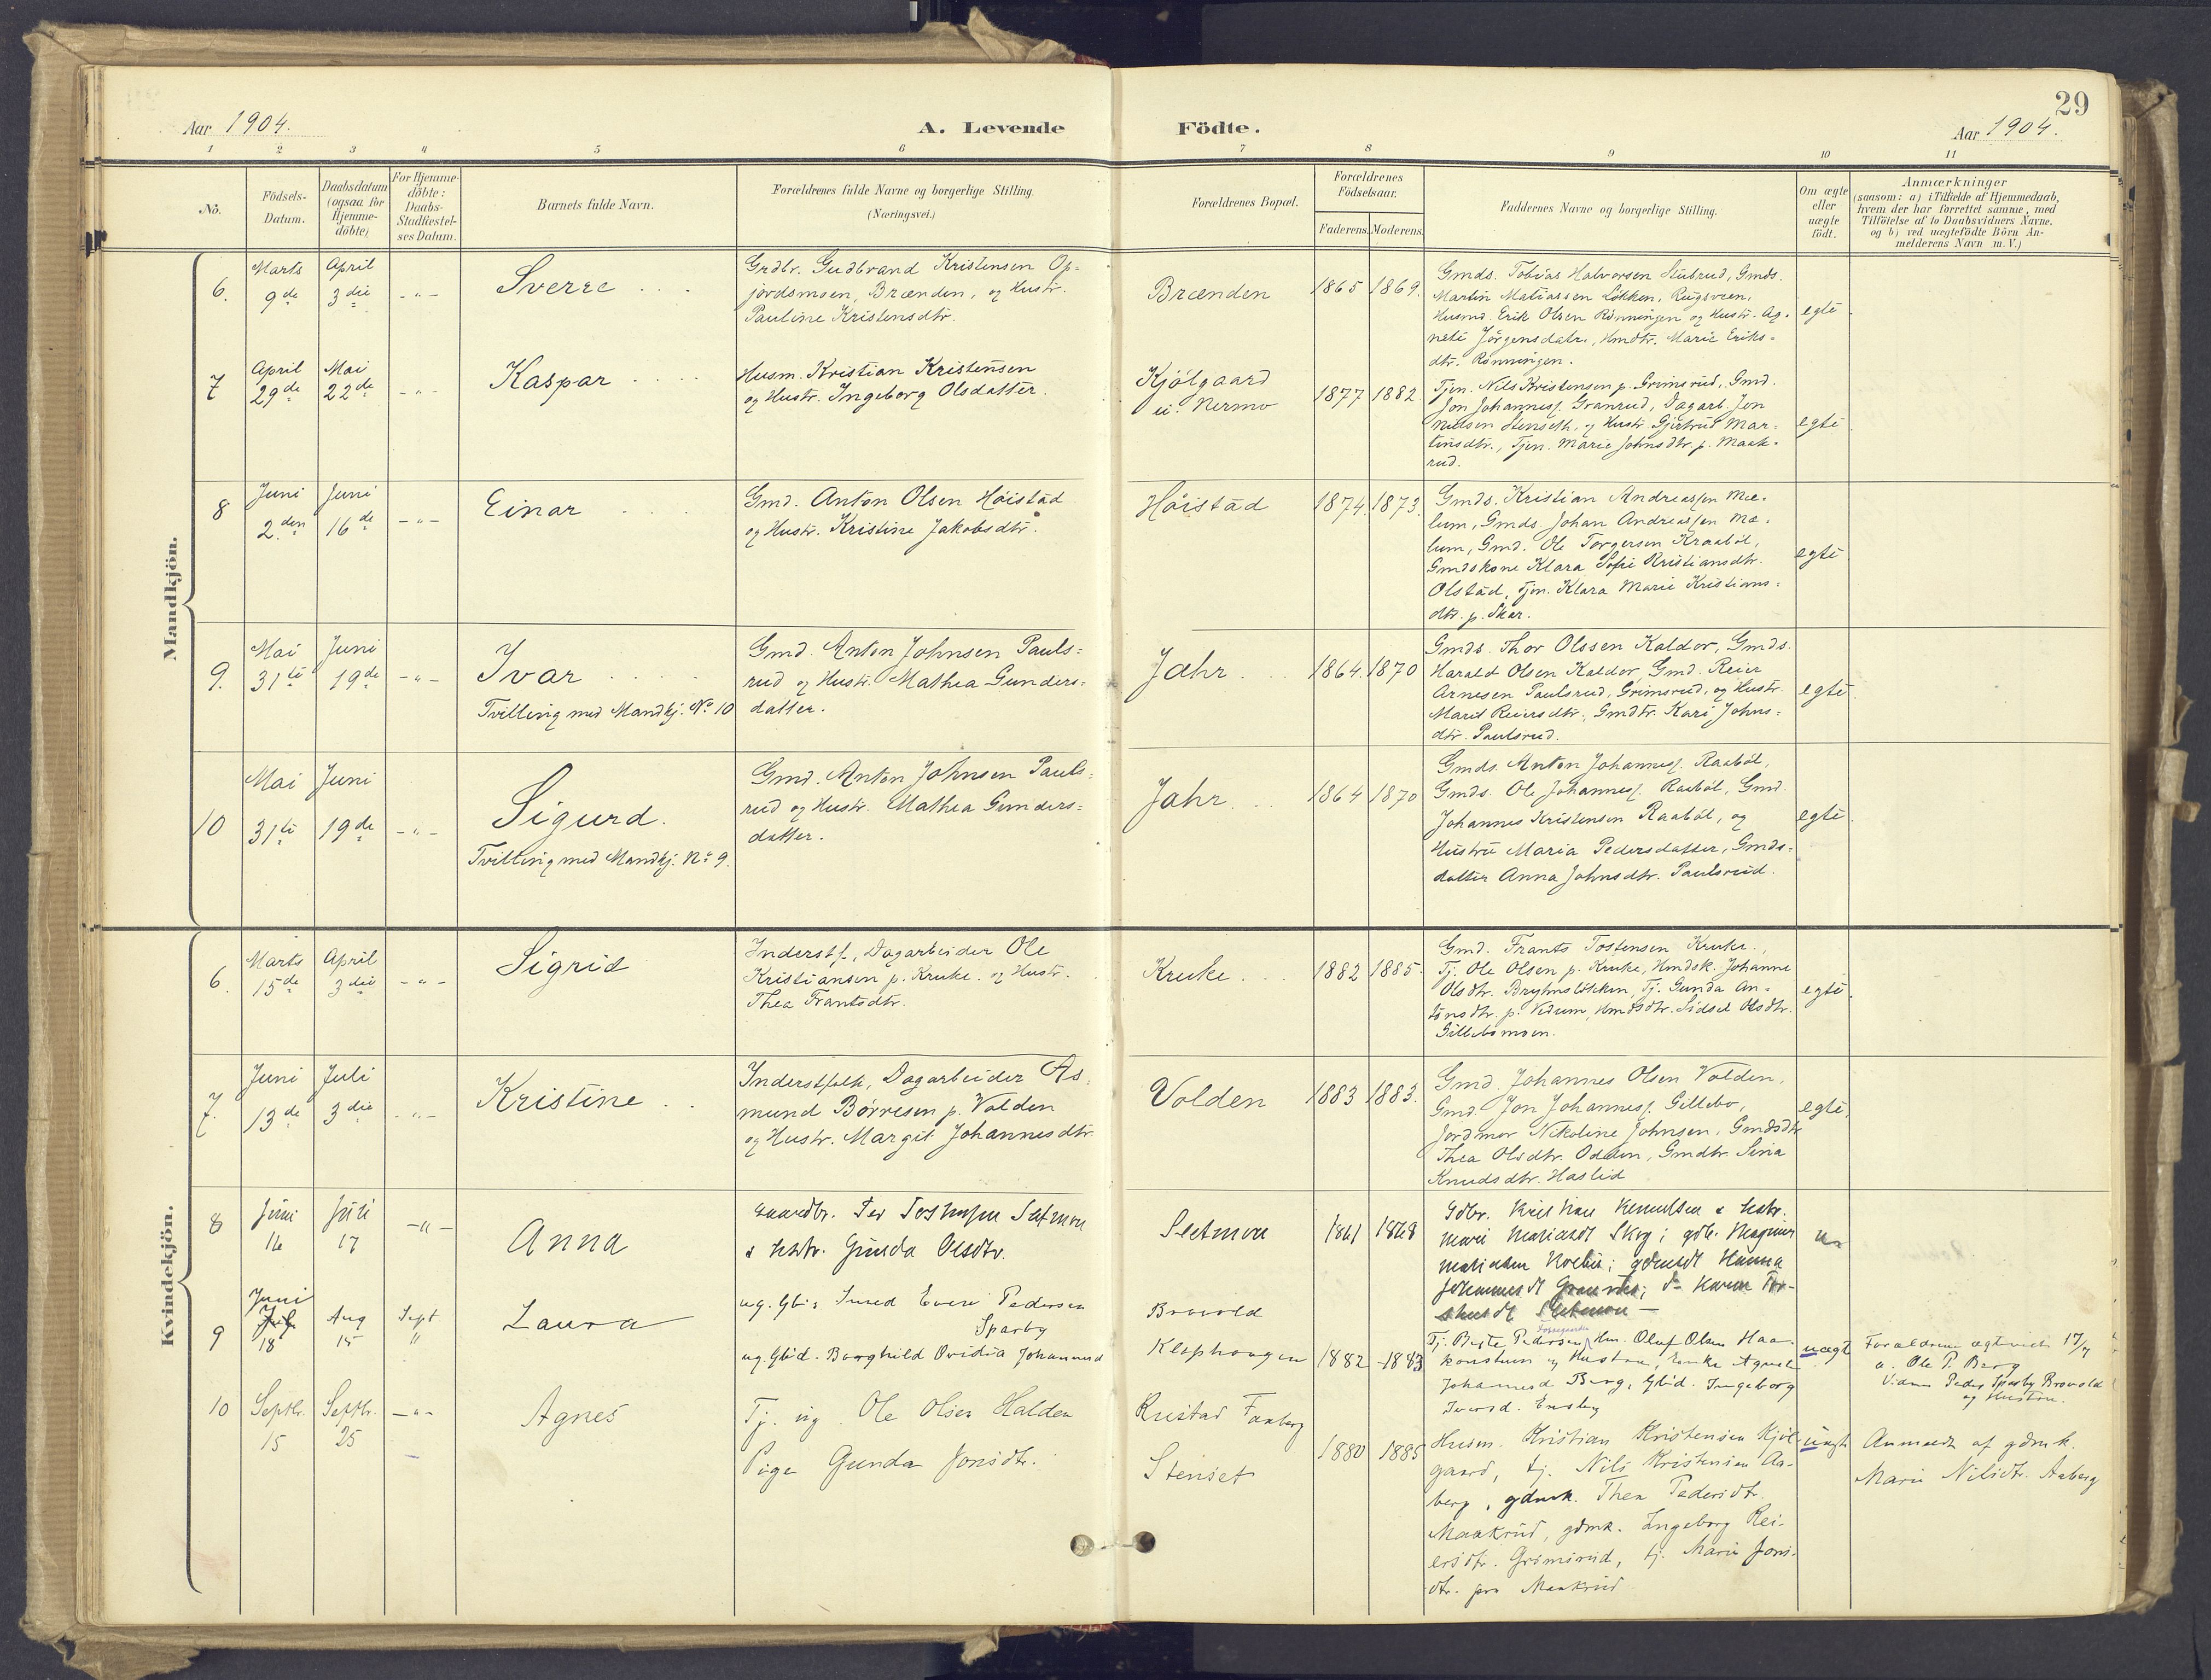 29
Aar 1904.
A. Levende
Födte.
Aar 1904.
1 2 3 4 5 6 7 8 9 10 11
No.
Födsels-
Datum.
Daabsdatum
(ogsaa for
Hjemme-
döbte)
For Hjemme-
döbte:
Daabs-
Stadfæstel-
ses Datum.
Barnets fulde Navn.
Forældrenes fulde Navne og borgerlige Stilling.
(Næringsvei.)
Forældrenes Bopæl.
Forældrenes
Födselsaar.
Faderens. Moderens.
Faddernes Navne og borgerlige Stilling.
Om ægte
eller
uægte
födt.
Anmærkninger
(saasom: a) i Tilfælde af Hjemmedaab,
hvem der har forrettet samme, med
Tilföielse af to Daabsvidners Navne.
og b) ved uægtefödte Börn An-
melderens Navn m. V.)
Mandkjön.
6.
Marts
9de
April
3die
- " -
Sverre
Grdbr. Gudbrand Kristensen Op=
jordsmoen, Brænden, og Hustr.
Pauline Kristensdtr.
Brænden
1865 1869.
Gmds. Tobias Halvorsen Stubrud, Gmds.
Martin Matiassen Løkken, Rugsveen,
Husmd. Erik Olsen Rønningen og Hustr. Ag=
nete Jørgensdatr., Hmdtr. Marie Eriks=
dtr. Rønningen.
egte.
7
April
29de
Mai
22de
- " -
Kaspar
Husm. Kristian Kristensen
og Hustr. Ingeborg Olsdatter.
Kjølgaard
u. Nermo
1877 1882
Tjen. Nils Kristensen p. Grimsrud, Gmd.
Jon Johanness. Granrud, Dagarb. Jon
Nielsen Stenseth, og Hustr. Gjertrud Mar=
tinsdtr., Tjen. Marie Johnsdtr. p. Maak=
rud.
egte.
8
Juni
2den
Juni
16de
- " -
Einar
Gmd. Anton Olsen Høistad
og Hustr. Kristine Jakobsdtr.
Høistad
1874. 1873.
Gmds. Kristian Andreassen Mæ=
lum, Gmds. Johan Andreassen Mæ=
lum, Gmd. Ole Torgersen Kraabøl,
Gmdskone Klara Sofie Kristiansdtr.
Olstad, Tjen. Klara Marie Kristians=
dtr. p. Skar.
egte
9.
Mai
31te
Juni
19de
- " -
Ivar
Tvilling med Mandkj. No 10
Gmd. Anton Johnsen Pauls=
rud og Hustr. Mathea Gunders=
datter.
Jahr.
1864. 1870
Gmds. Thor Olssen Kaldor, Gmds.
Harald Olsen Kaldor, Gmd. Reier
Arnesen Paulsrud, Grimsrud, og Hustr.
Marit Reiersdtr., Gmdtr. Kari Johns=
dtr. Paulsrud.
egte.
10
Mai
31te
Juni
19de
- " -
Sigurd.
Tvilling med Mandkj. No 9.
Gmd. Anton Johnsen Pauls=
rud og Hustr. Mathea Gunders=
datter.
Jahr.
1864 1870
Gmds. Anton Johanness. Raabøl,
Gmds. Ole Johanness. Raabøl, Gmd.
Johannes Kristensen Raabøl, og
Hustru Maria Pedersdatter, Gmds=
datter Anna Johnsdtr. Paulsrud.
egte.
Kvindekjön.
6.
Marts
15de
April
3die
- " -
Sigrid
Inderstf., Dagarbeider Ole
Kristiansen p. Kruke. og Hustr.
Thea Frantsdtr.
Kruke.
1882 1885.
Gmd. Frants Tostensen Kruke.,
Tj. Ole Olsen p. Kruke, Hmdsk. Johanne
Olsdtr. Bryhnsløkken, Tj. Gunda An=
tonsdtr. p. Vedum, Hmdsdtr. Sidsel Olsdtr.
Gillebomoen.
egte.
7.
Juni
13de
Juli
3die
- " -
Kristine
Inderstfolk, Dagarbeider As=
mund Børresen p. Volden
og Hustr. Margit Johannesdtr.
Volden
1883 1883.
Gmd. Johannes Olsen Volden,
Gmd. Jon Johanness. Gillebo,
Jordmor Nikoline Johnsen, Gmdsdtr
Thea Olsdtr. Odden, Gmdtr. Sina
Knudsdtr. Haslid
egte,
8
Juni
16
Juli
17
- " -
Anna
Gaardbr.
Gunda Olsdtr.
Sletmoen
1861 1868
9
Juni
18
Aug
15
Sept
"
Laura
ug. Gbs. Iver Even Pedersen
Sparby
ug. Gbd. Borghild Ovidia Johannesd
Brovold
Klophaugen
1882 - 1883
Tj. Pedersen, Hm. Oluf Olsen Haa-
og Hustru, Enke Agnete
Johannesd Berg, Gbd. Ingeborg
Iversd.
uægt
Forældrene ægteviet 17/7
a. Ole P. Berg
Vidne Peder Sparby Brovold
og Hustru.
10
Septbr.
15
Septbr.
25
- " -
Agnes
Tj. ug. Ole Olsen Halden
Pige Gunda Jonsdtr.
Faaberg
Stenset
1880 1885
Husm. Kristian Kristensen Kjøl-
gaard, tj. Nils Kristensen Aa-
berg, gdmk. Thea Pedersdtr.
Maakrud, gdmk. Ingeborg Rei-
ersdtr. Grimsrud, tj. Marie Jons-
dtr. paa Maakrud
uægt
Anmeldt af gdmk.
Marie Nilsdtr. Aaberg